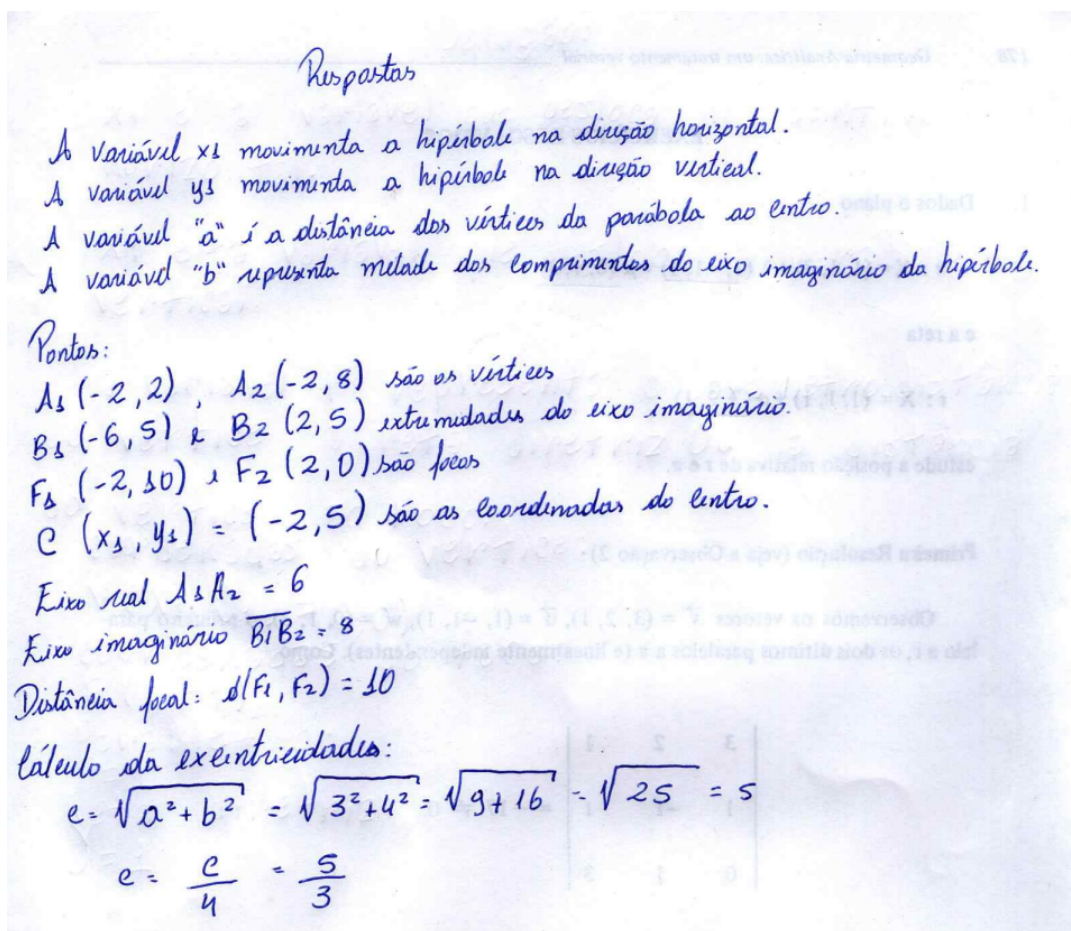 Respostas
A variável x1 movimenta a hipérbole na direção horizontal.
A variável y1 movimenta a hipérbole na direção vertical.
A variável "a" é a distância dos vértices da parábola ao centro.
A variável "b" representa metade dos comprimentos do eixo imaginário da hipérbole.
Pontos:
A1 (-2,2), A2 (-2,8) são os vértices
B1 (-6,5) e B2 (2,5) extremidades do eixo imaginário.
F1 (-2,10) e F2 (2,0) são focos
C (x1, y1) = (-2,5) são as coordenadas do centro.
Eixo real A1A2 = 6
Eixo imaginário B1B2 = 8
Distância focal: d(F1, F2) = 10
Cálculo da exentricidades:
c = √a²+b² = √3²+4² = √9+16 = √25 = 5
e = c/4 = 5/3